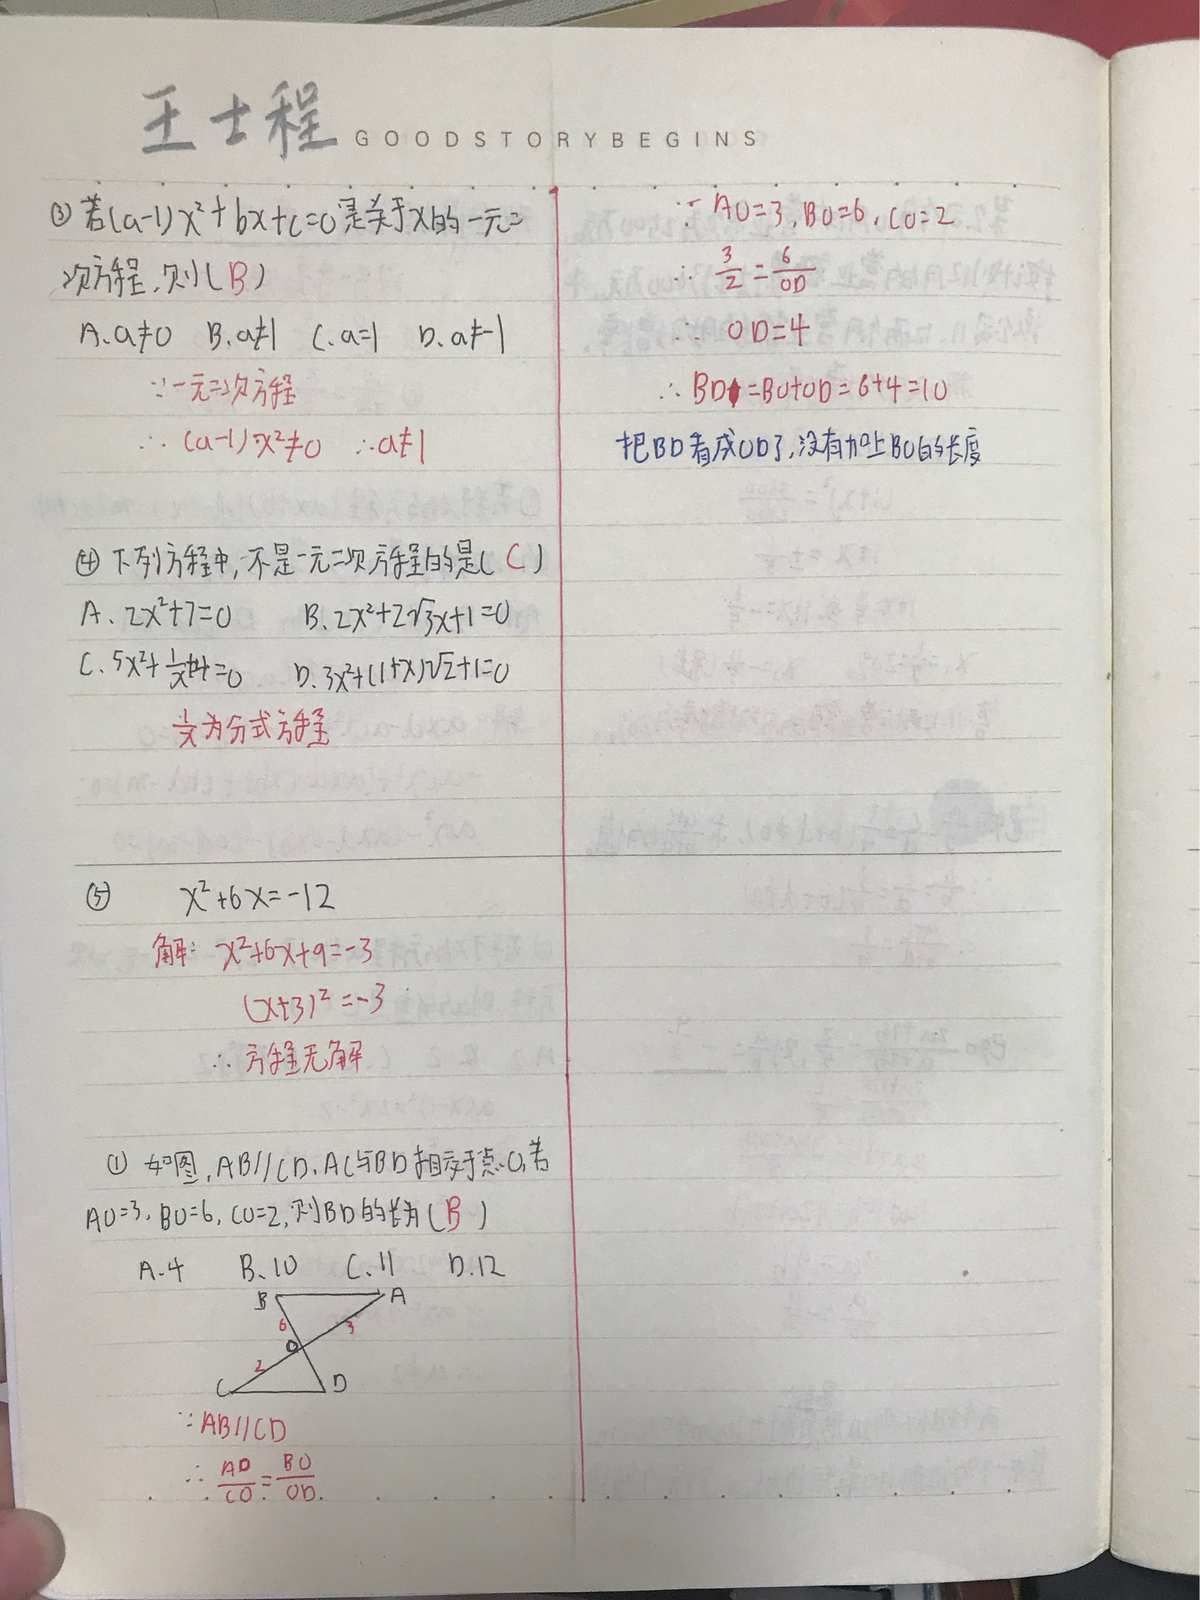 王士程 GOODSTORYBEGINS
③ 若(a-1)x²+bx+c=0是关于x的一元二
次方程,则(B)
A.a≠0 B.a≠1 C.a=1 D.a≠-1
∵一元二次方程
∴ (a-1)·x²≠0 ∴a≠1
④ 下列方程中,不是一元二次方程的是(C)
A. 2x²+7=0 B. 2x²+2√3x+1=0
C. 5x²+1/x+4=0 D. 3x²+(1+x)√2+1=0
1/x为分式方程
⑤ x²+6x=-12
解: x²+6x+9=-3
(x+3)²=-3
∴ 方程无解
① 如图,AB//CD,AC与BD相交于点O,若
AO=3,BO=6,CO=2,则BD的长为(B)
A.4 B.10 C.11 D.12
B A
6 3
O
2
C D
∵AB//CD
∴ AO/CO=BO/OD
∵ AO=3,BO=6,CO=2
∴ 3/2=6/OD
∴ OD=4
∴ BD=BO+OD=6+4=10
把BD看成OD了,没有加上BO的长度